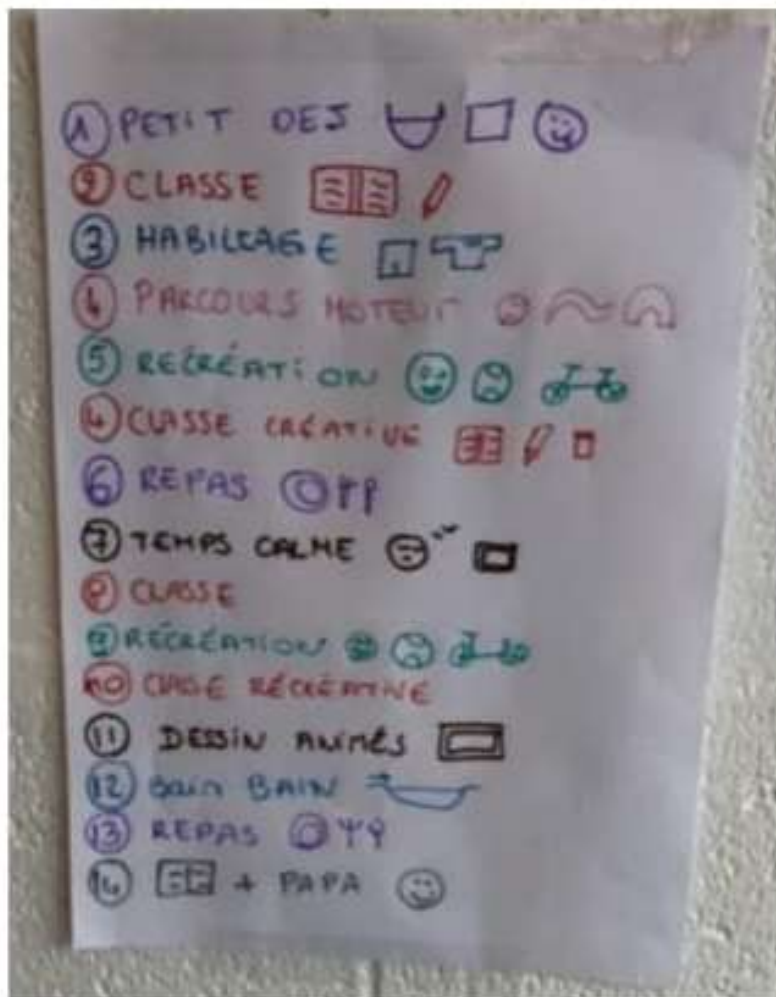 1 PETIT DEJ
2 CLASSE
3 HABILLAGE
4 PARCOURS MOTEUR
5 RECRÉATION
4 CLASSE CRÉATIVE
6 REPAS
7 TEMPS CALME
8 CLASSE
9 RECRÉATION
10 CLASSE RÉCRÉATIVE
11 DESSIN ANIMÉS
12 Bain BAIN
13 REPAS
14 + PAPA